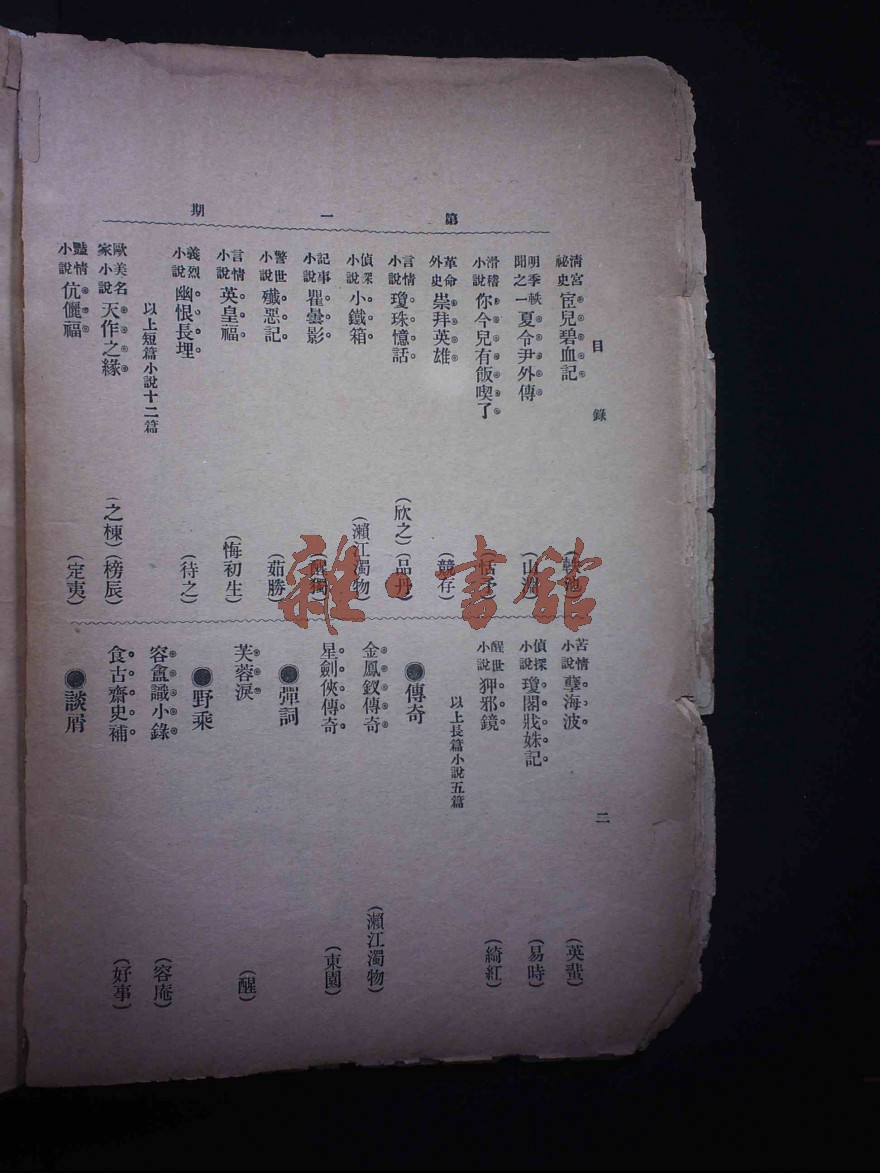 目錄 二
第一期
清宮祕史 宦兒碧血記
明季軼聞之一 夏令尹外傳 (山淵)
滑稽小說 你今兒有飯喫了 (恬予)
革命外史 崇拜英雄 (競存)
言情小說 瓊珠憶話 (欣之)(品丹)
偵探小說 小鐵箱 (瀨江濁物)
記事小說 瞿曇影 (醒獨)
警世小說 殲惡記 (茹勝)
言情小說 英皇福 (悔初生)
義烈小說 幽恨長埋 (待之)
以上短篇小說十二篇
歐美名家小說 天作之緣 (之棟)(榜辰)
豔情小說 伉儷福 (定夷)
苦情小說 孽海波 (英蜚)
偵探小說 瓊閣戕姝記 (易時)
醒世小說 狎邪鏡 (綺紅)
以上長篇小說五篇
●傳奇
金鳳釵傳奇 (瀨江濁物)
星劍俠傳奇 (東園)
●彈詞
芙蓉淚 (醒)
●野乘
容盦識小錄 (容庵)
食古齋史補 (好事)
●談屑
雜·書館